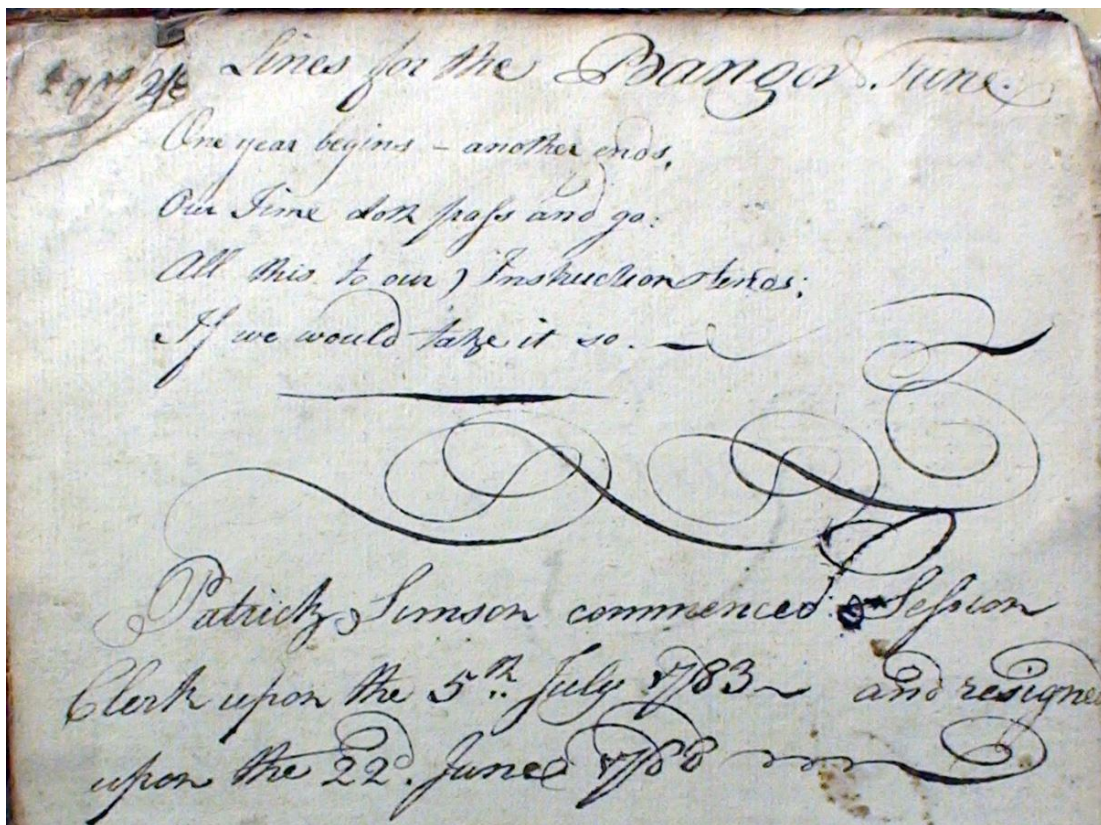 Lines for the Bangor Tune.
One year begins – another ends,
Our Time doth pass and go:
All this to our Instruction tends;
If we would take it so. —
Patrick Simson commenced Session
Clerk upon the 5th July 1783 ~ and resigned
upon the 22d. June 1788